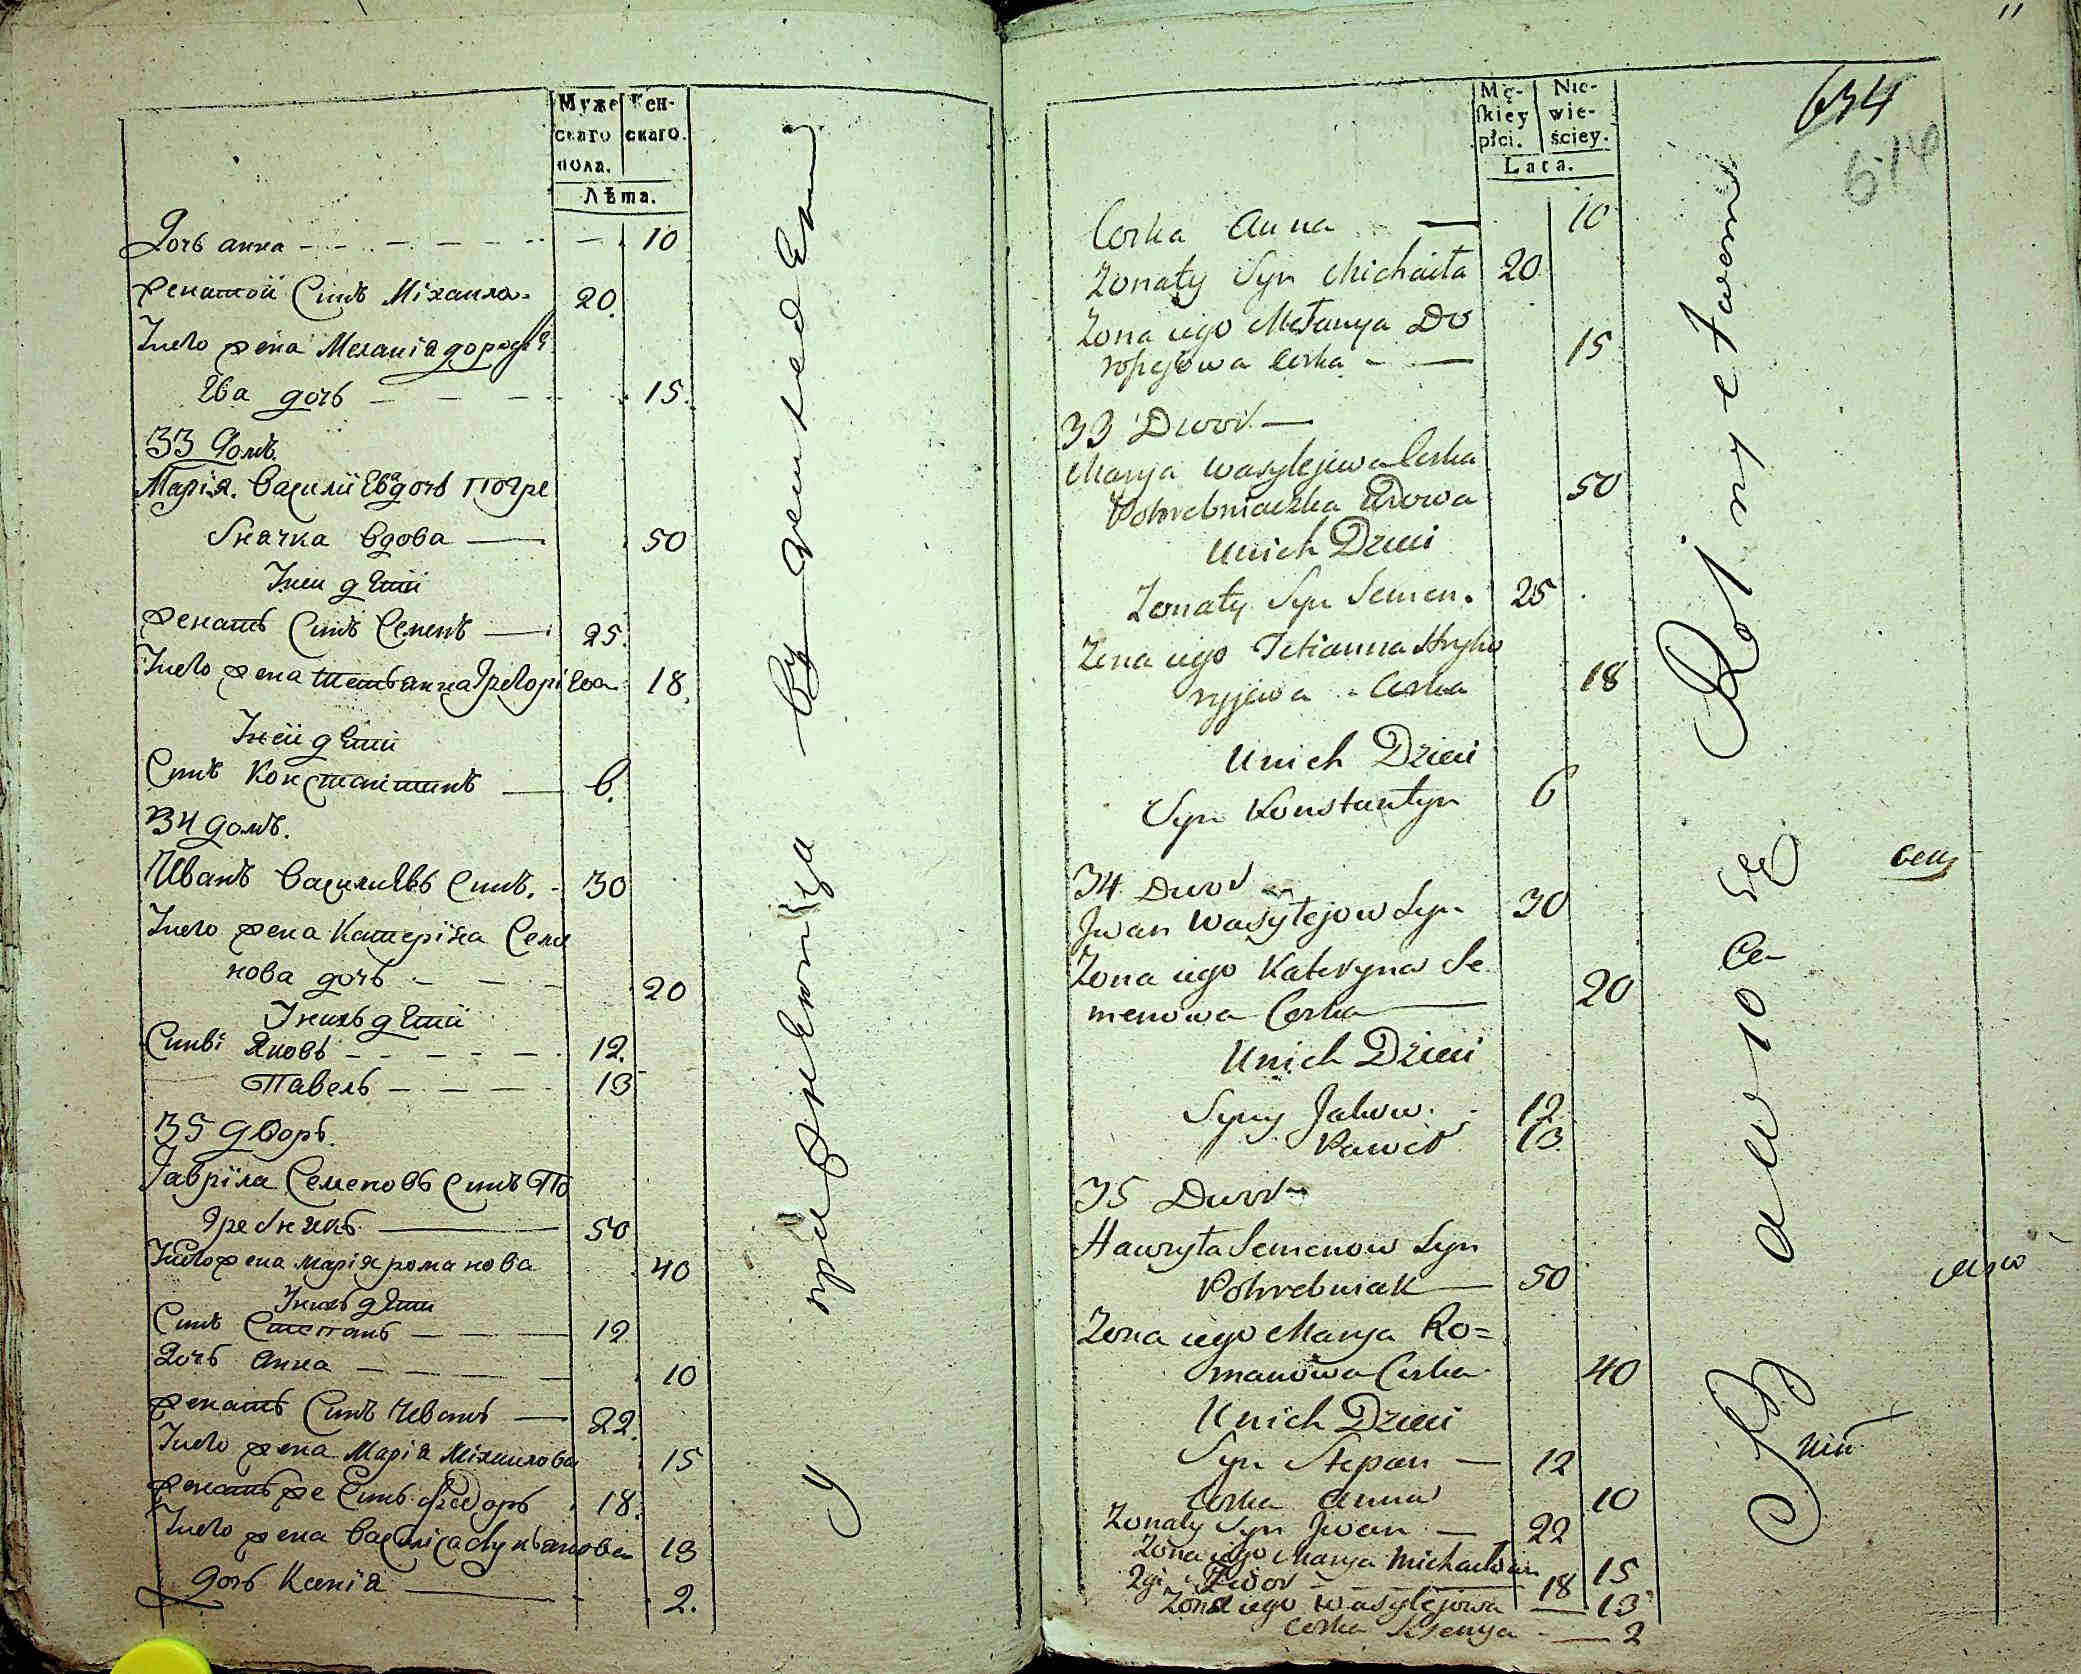 Муже
скаго
пола.
Жен-
скаго.
Лѣта.
Дочъ анна 10
Женатой Синъ Міхаила 20.
Інего жена Меланія дорофѣ
ева дочъ 15.
33 Домъ.
Марія Василіева дочъ Погре
бнячка вдова 50
Інеи дѣти
Женатъ Синъ Семенъ 25.
Інего жена Тетьянна Грегоріева 18.
Інеи дѣти
Синъ Константинъ 6.
34 домъ.
Иванъ Василиевъ Синъ. 30
Інего жена Катеріна Семе
нова дочъ 20
Інихъ дѣти
Сині Яковъ 12.
Павелъ 13
35 дворъ.
Гавріла Семеновъ Синъ По
гребнякъ 50
Інего жена марія романова 40
Інихъ дѣти
Синъ Степанъ 12
Дочъ Анна 10
Женатъ Синъ Иванъ 22.
Інего жена Марія Міхаилова 15
Женатъ же Синъ Федоръ 18.
Інего жена Василіса Лукъянова 13
Дочъ Ксенія 2.
11
634
Mę-
skiey
płci.
Nie-
wie-
ściey.
Lata.
Corka Anna 10
Zonaty Syn Michaiła 20
Zona iego Mełanya Do
rofiejowa Corka 15
33 Dwor
Marya Wasylejewa Corka
Pohrebniaczka Wdowa 50
Unich Dzieci
Zonaty Syn Semen. 25
Zona iego Tetianna Hryho
ryjewa Corka 18
Unich Dzieci
Syn Konstantyn 6
34 Dwor
Jwan Wasylejow Syn 30
Zona iego Kateryna Se
menowa Corka 20
Unich Dzieci
Syny Jakow. 12
Paweł 13
35 Dwor
Hawryła Semenow Syn
Pohrebniak 50
Zona iego Marya Ro=
manowa Corka 40
Unich Dzieci
Syn Stepan 12
Corka Anna 10
Zonaty Syn Jwan 22
Zona iego Marya Michaiłowa 15
2gi Fedor 18
Zona iego Wasylejowa 13
Corka Ksenya 2